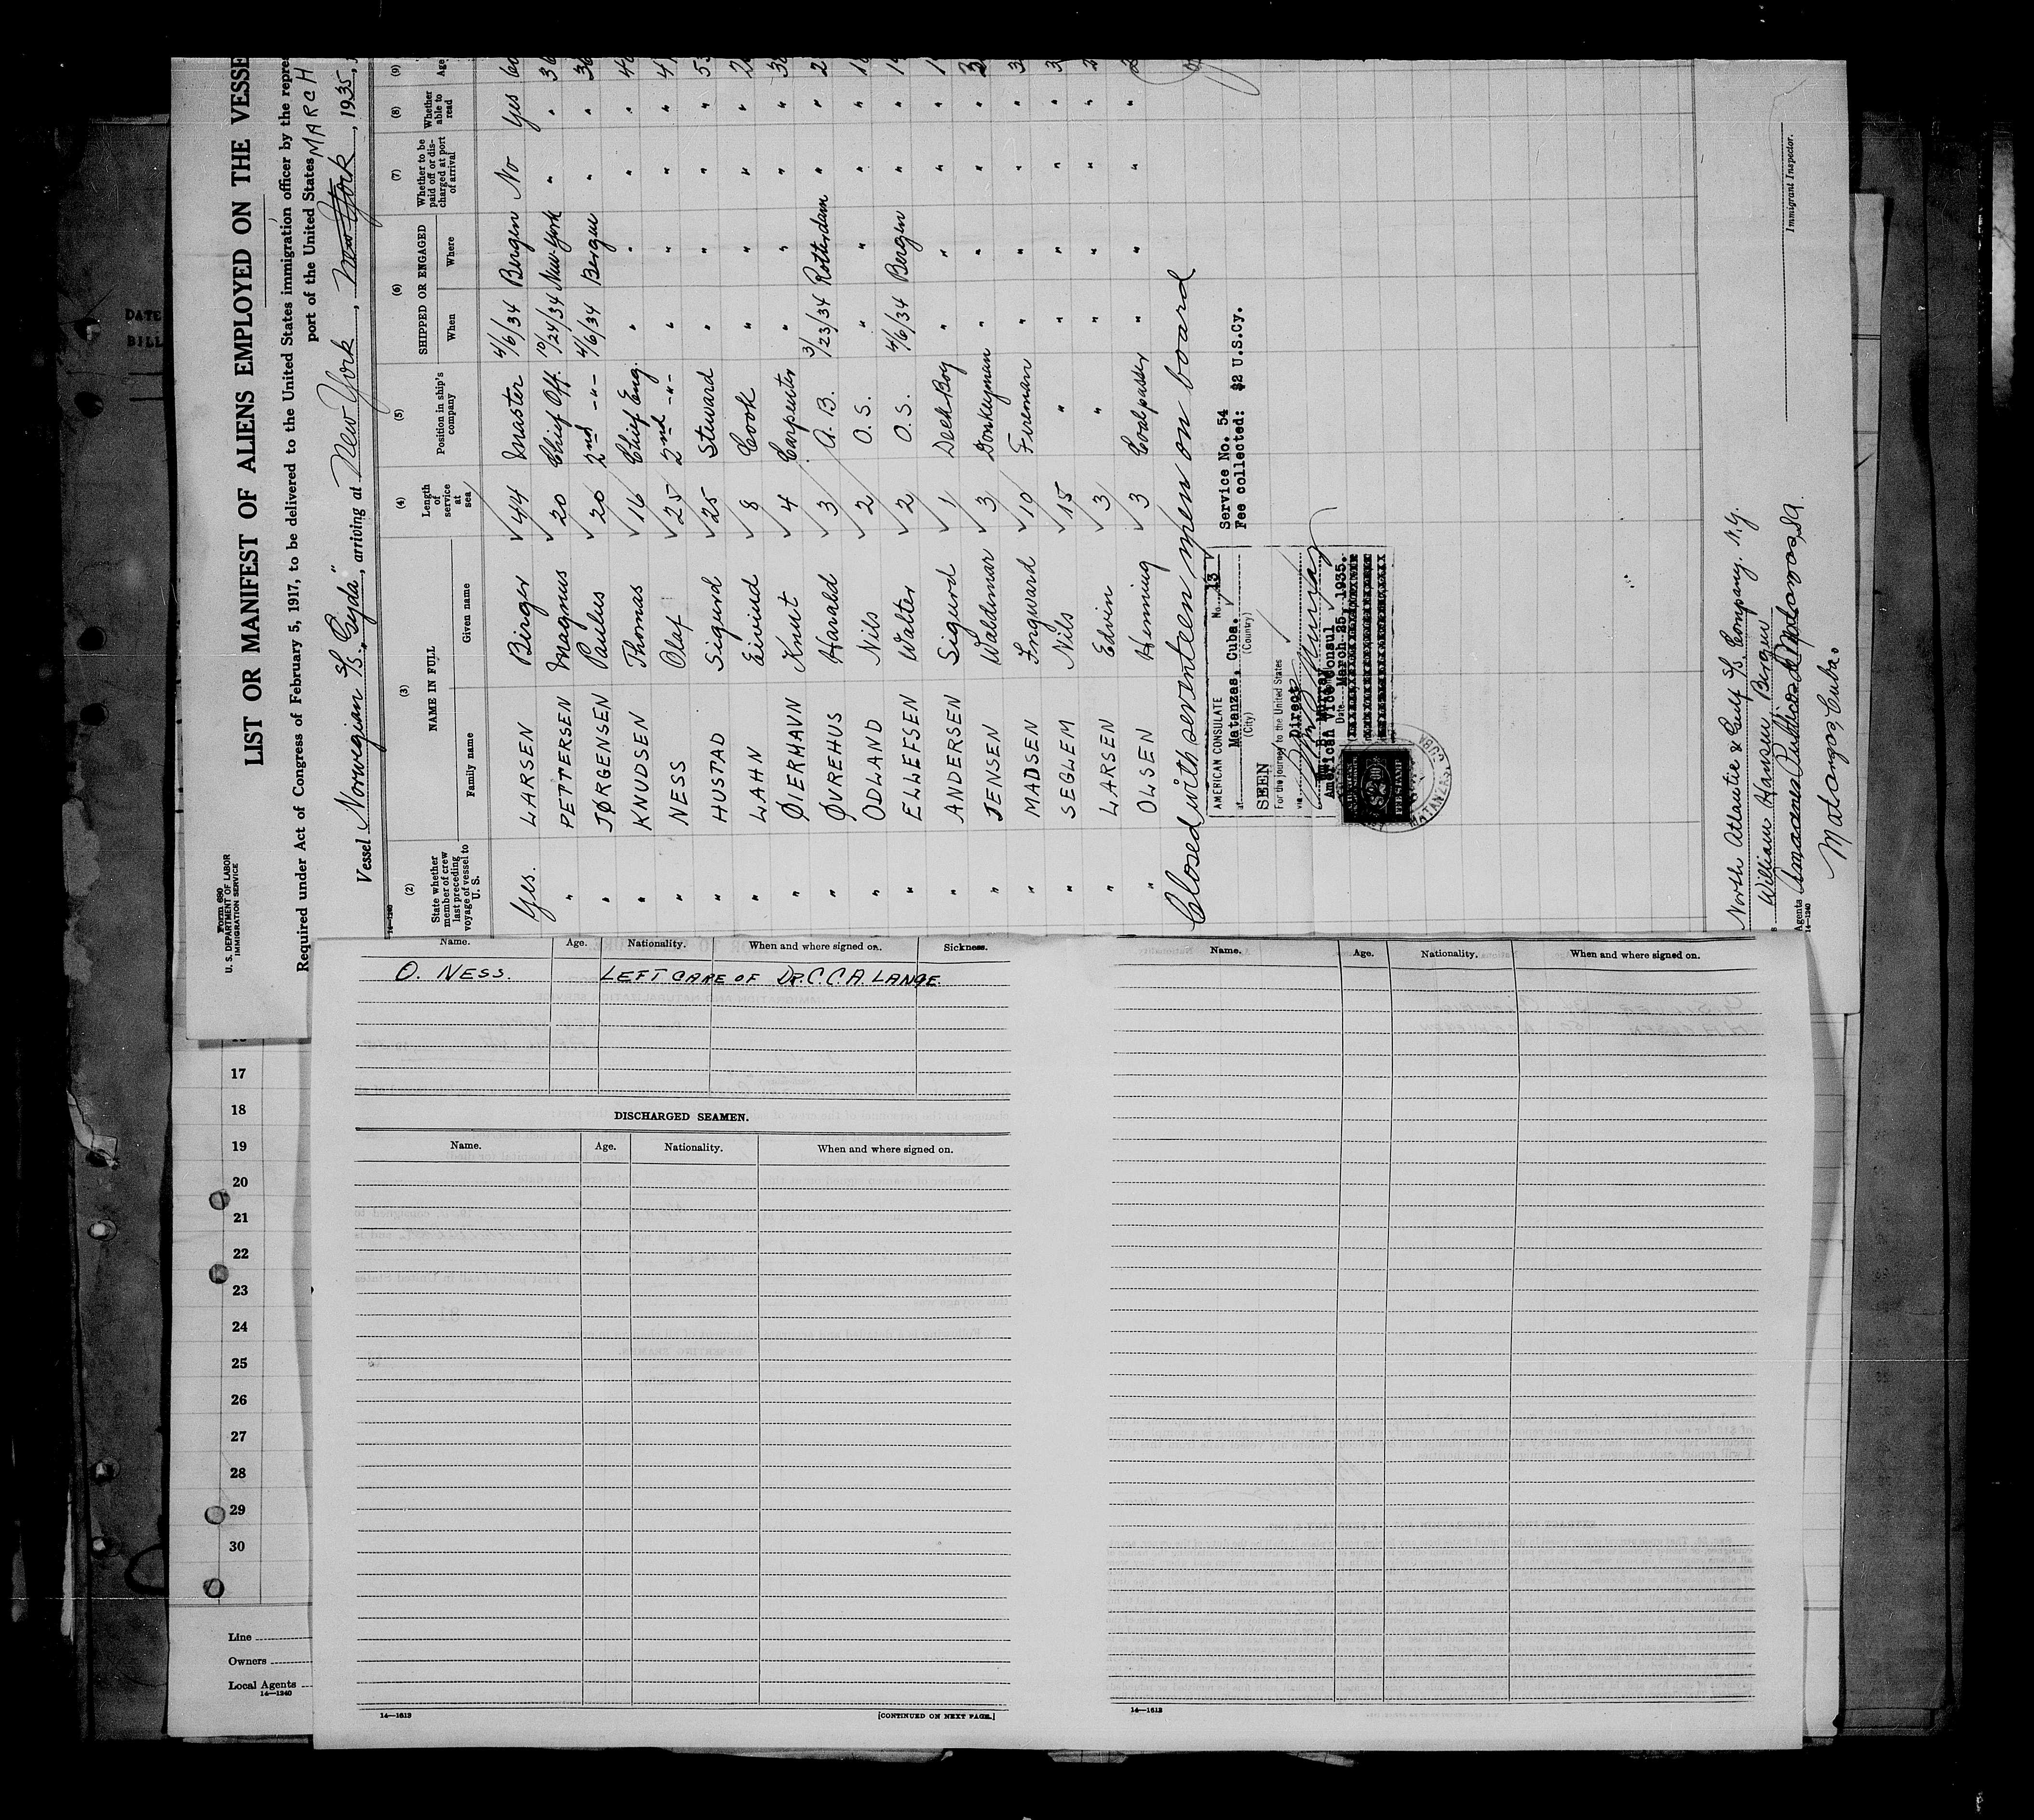 Form 680
U. S. DEPARTMENT OF LABOR
IMMIGRATION SERVICE
LIST OR MANIFEST OF ALIENS EMPLOYED ON THE VESSE
Required under Act of Congress of February 5, 1917, to be delivered to the United States immigration officer by the repre
port of the United States
Vessel Norwegian S/S. "Gyda", arriving at New York, New York MARCH, 1935,
(2) (3) (4) (5) (6) (7) (8) (9)
State whether member of crew last preceding voyage of vessel to U. S.
NAME IN FULL
Family name Given name
Length of service at sea
Position in ship's company
SHIPPED OR ENGAGED
When Where
Whether to be paid off or discharged at port of arrival
Whether able to read
Age
14—1240
Yes. LARSEN Birger 44 Master 4/6/34 Bergen No Yes
" PETTERSEN Magnus 20 Chief Off. 10/24/34 New-York " "
" JØRGENSEN Paulus 20 2nd -"- 4/6/34 Bergen " "
" KNUDSEN Thomas 16 Chief Eng. " " " "
" NESS Olaf 25 2nd -"- " " " "
" HUSTAD Sigurd 25 Steward " " " "
" LAHN Eivind 8 Cook " " " "
" ØIERHAVN Knut 4 Carpenter " " " "
" ØVREHUS Harald 3 A.B. 3/23/34 Rotterdam " "
" ODLAND Nils 2 O.S. " " " "
" ELLEFSEN Walter 2 O.S. 4/6/34 Bergen " "
" ANDERSEN Sigurd 1 Deck Boy " " " "
" JENSEN Waldemar 3 Donkeyman " " " "
" MADSEN Ingward 10 Fireman " " " "
" SEGLEM Nils 15 " " " " "
" LARSEN Edvin 3 " " " " "
" OLSEN Henning 3 Coalpasser " " " "
Closed with seventeen men on board
AMERICAN CONSULATE No. 13
at Matanzas, Cuba.
(City) (Country)
SEEN
For the journey to the United States
via Direct
American Vice Consul
Date March 25, 1935.
Service No. 54
Fee collected: $2 U.S.Cy.
North Atlantic & Gulf S/S Company. N.Y.
William Hansen Bergen
Agents
14—1240
Immigrant Inspector.
Name. Age. Nationality. When and where signed on. Sickness.
O. NESS. LEFT CARE OF DR. C.C.A. LANGE.
DISCHARGED SEAMEN.
Name. Age. Nationality. When and where signed on.
14—1613 [CONTINUED ON NEXT PAGE.]
Name. Age. Nationality. When and where signed on.
14—1613
17
18
19
20
21
22
23
24
25
26
27
28
29
30
Line
Owners
Local Agents
14—1240